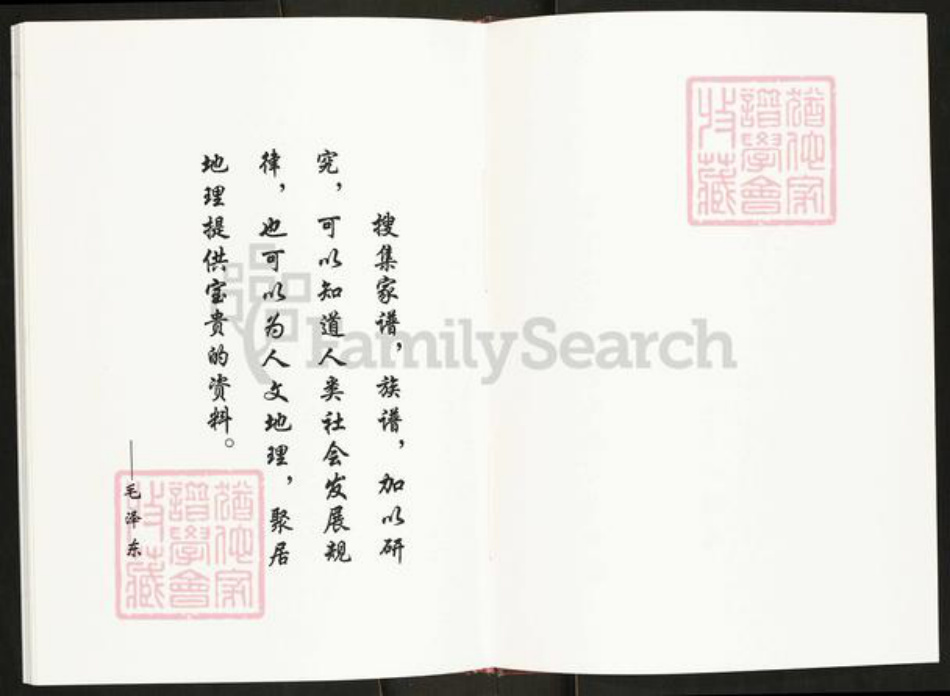 搜集家谱，族谱，加以研
究，可以知道人类社会发展规
律，也可以为人文地理，聚居
地理提供宝贵的资料。
——毛泽东
猶他家
譜學會
收藏
猶他家
譜學會
收藏
FamilySearch